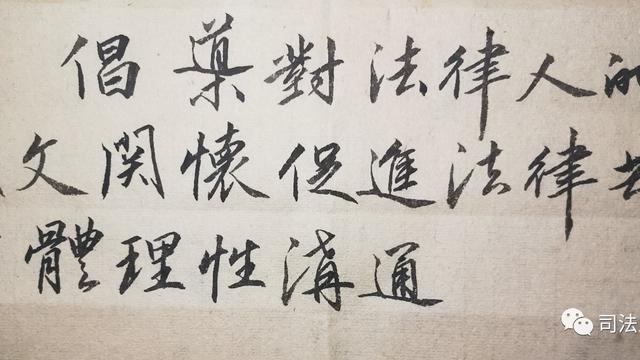 倡導對法律人的
文関懷促進法律共
體理性溝通
司法